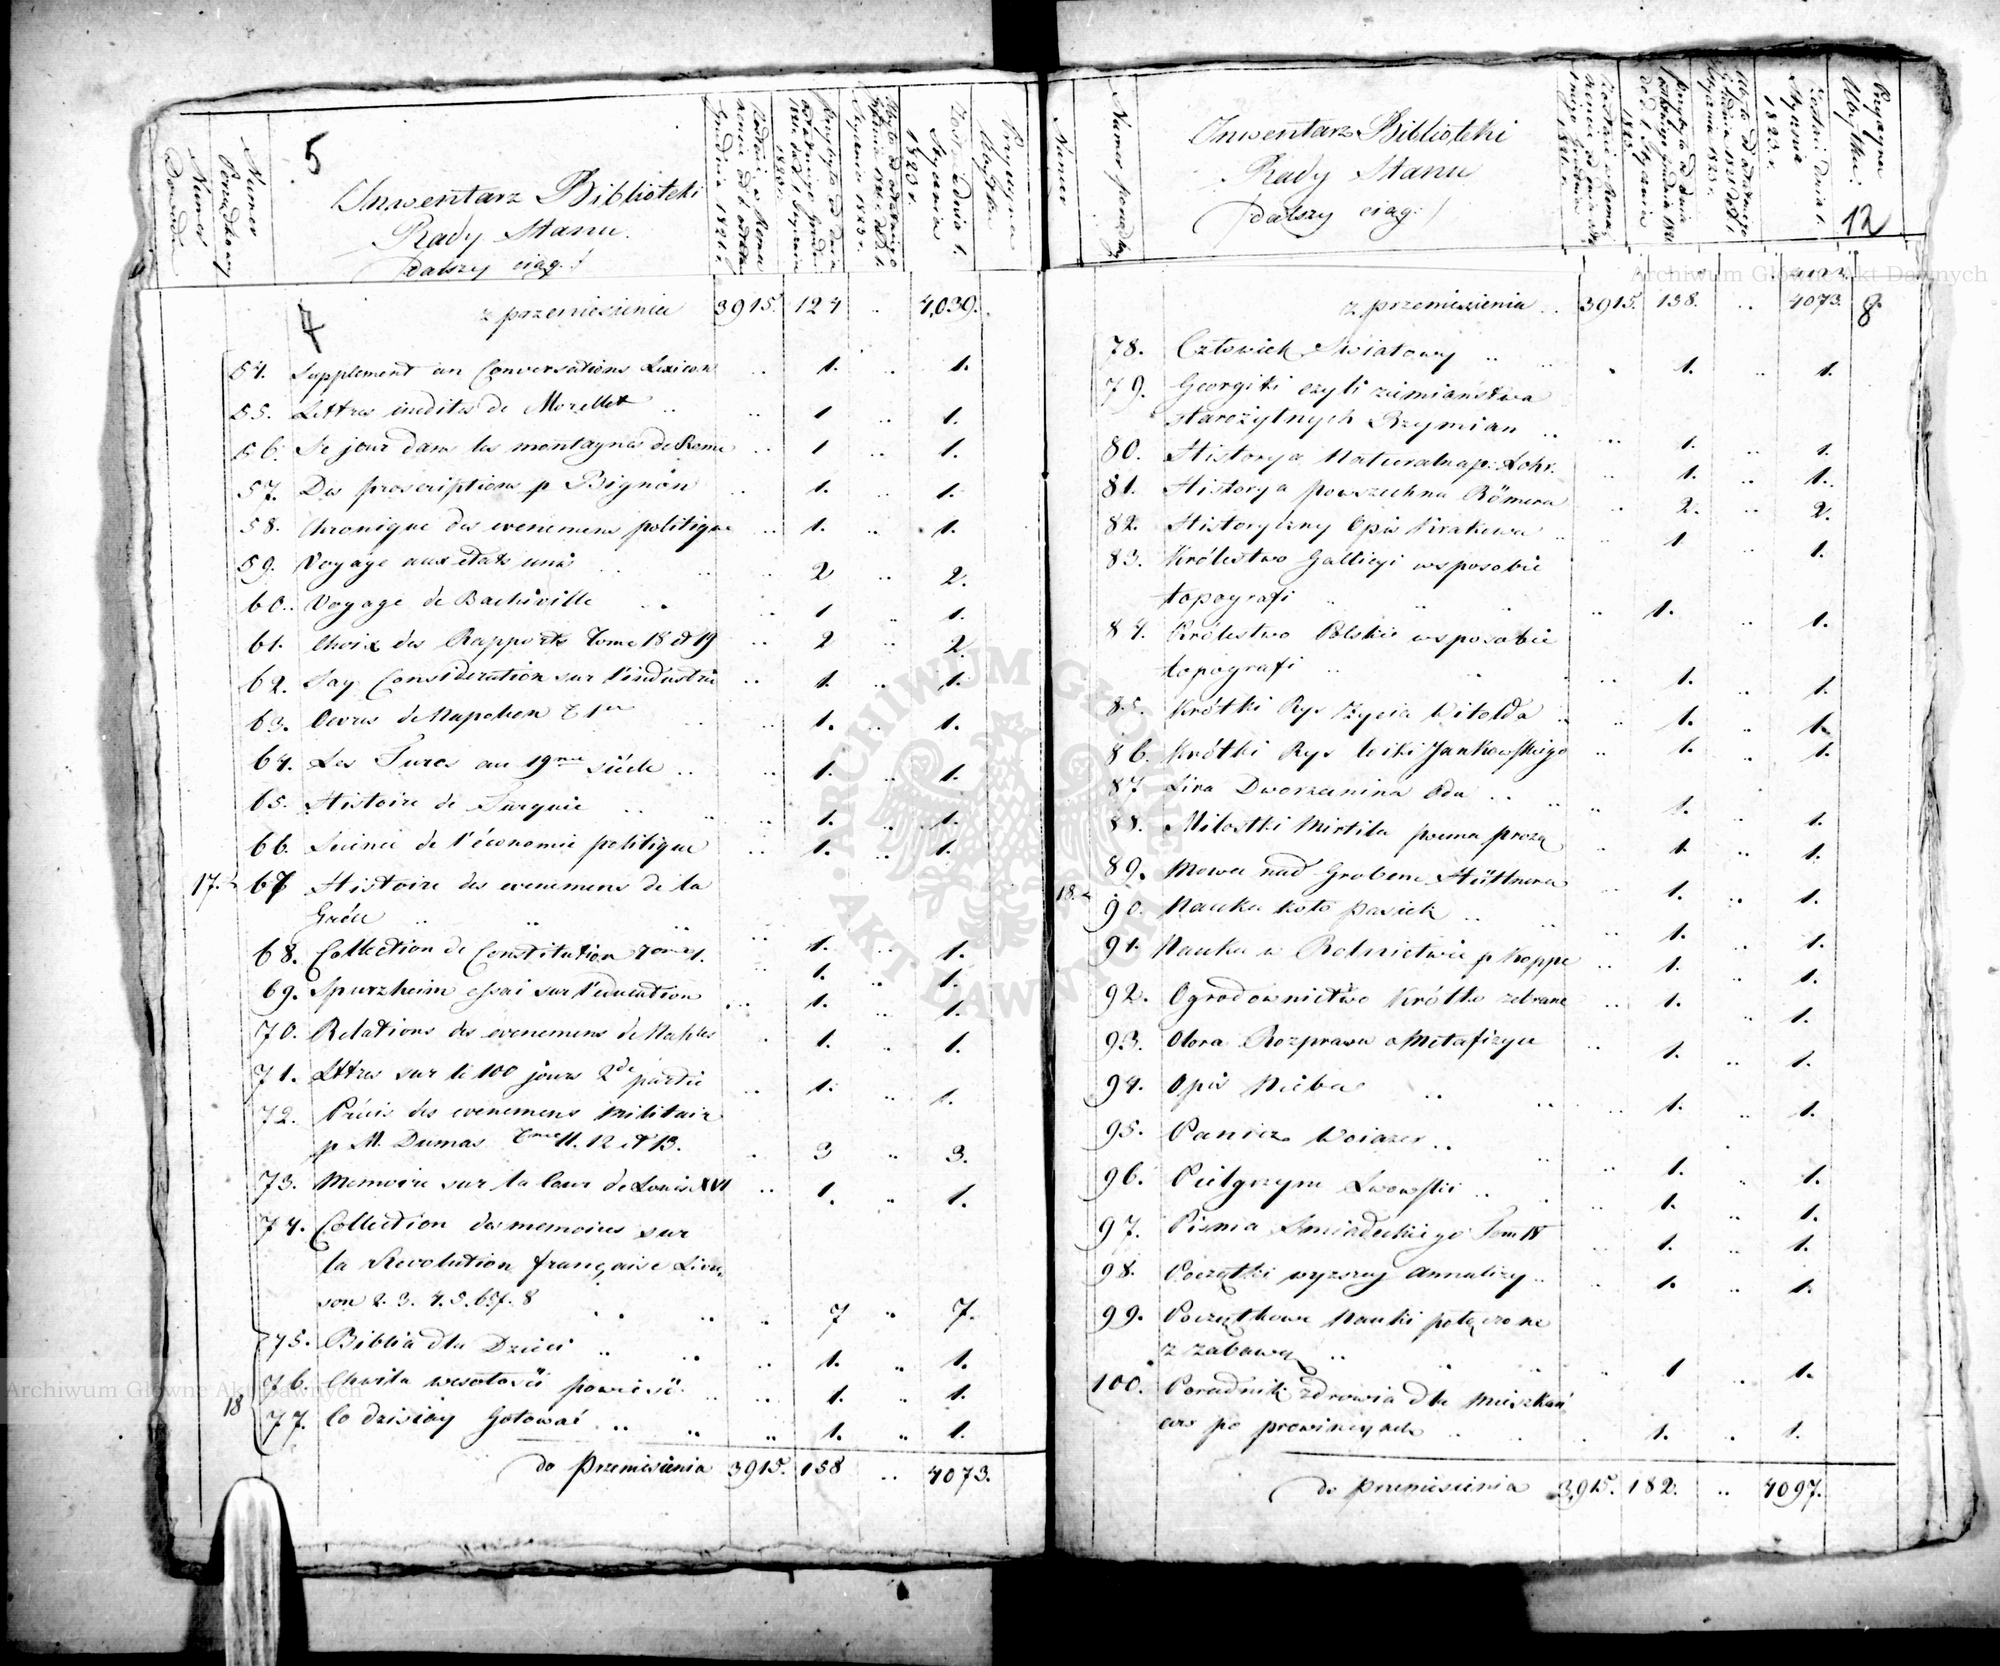 Numer Dowodu
Numer Porządkowy
5
Inwentarz Biblioteki
Rady Stanu.
(dalszy ciąg.)
Przyczyna Ubytku
z przeniesienia 3915. 124 .. 4,039.
4
54. Supplement au Conversations Lexicon .. 1. .. 1.
55. Lettres inedites de Morellet .. .. 1 .. 1.
56. Sejour dans les montagnes de Rome .. 1 .. 1.
57. Des proscriptions p Bignon .. 1. .. 1.
58. Chronique des evenemens politique .. 1. .. 1.
59. Voyage aux états unis .. .. 2 .. 2.
60. Voyage de Bachiville .. .. 1 .. 1.
61. Choix des Rapports Tome 18 et 19 .. 2 .. 2.
62. Say Consideration sur l'industrie .. 1. .. 1.
63. Oevres de Napoleon T 1er .. 1. .. 1.
64. Les Turcs au 19me siécle .. .. 1. .. 1.
65. Histoire de Turquie .. .. 1. .. 1.
66. Science de l'économie politique .. 1. .. 1.
17. 67 Histoire des evenemens de la
Gréce .. .. .. 1. .. 1.
68. Collection de Constitution Tome 1. .. 1. .. 1.
69. Spurzheim essai sur l'education .. 1. .. 1.
70. Relations des evenemens de Naples . 1. .. 1.
71. Lttres sur le 100 jours 2de partie .. 1. .. 1.
72. Précis des evenemens militair
p M. Dumas Tome 11. 12 et 13. . 3 .. 3.
73. Memoire sur la Cour de Louis XVI .. 1. .. 1.
74. Collection des memoires sur
la Revolution française Livrai
son 2. 3. 4. 5. 6. 7. 8 .. 7 .. 7.
75. Biblia dla Dzieci .. .. .. 1. .. 1.
76. Chwila wesołości powieść .. .. 1. .. 1.
18 77. Co dzisiay Gotować .. .. .. 1. .. 1.
do Przeniesienia 3915. 158 .. 4073.
Numer
Numer porządkowy
Inwentarz Biblioteki
Rady Stanu
(dalszy ciąg.)
Przyczyna Ubytku.
12
z przeniesienia .. 3915. 158. .. 4073. 8.
78. Człowiek Swiatowy .. 1. .. 1.
79. Georgiki czyli ziemiaństwa
starożytnych Rzymian .. .. 1. .. 1.
80. Historya Naturalna p. Lohr. .. 1. .. 1.
81. Historya powszechna Römera .. 2. .. 2.
82. Historyczny Opis Krakowa .. 1 .. 1.
83. Królestwo Gallicyi w sposobie
topografi .. .. .. .. 1. .. 1.
84. Królestwo Polskie w sposobie
topografi .. .. 1. .. 1.
85. Krótki Rys życia Witolda .. .. 1. .. 1.
86. Krótki Rys loiki Jankowskiego .. 1. .. 1.
87 Lira Dworzanina Oda .. .. .. 1. .. 1.
88. Miłostki Mirtila poema prozą .. 1. .. 1.
89. Mowa nad Grobem Hüttnera .. 1. .. 1.
18. 90. Nauka koło pasiek .. .. 1. .. 1.
91. Nauka w Rolnictwie p Koppe .. 1. .. 1.
92. Ogrodownictwo Krótko zebrane .. 1. .. 1.
93. Olora Rozprawa o Metafizyce .. 1. .. 1.
94. Opis Nieba .. .. .. 1. .. 1.
95. Panicz Woiazer .. .. .. 1. .. 1.
96. Pielgrzym Lwowski .. .. 1. .. 1.
97. Pisma Sniadeckiego Tom IV .. 1. .. 1.
98. Początki wyzszey Annalizy .. .. 1. .. 1.
99. Początkowe Nauki połączone
z zabawą .. .. .. 1 .. 1.
100. Poradnik zdrowia dla Mieszkań
cow po prowincyach .. .. 1. .. 1.
do przeniesienia 3,915. 182. .. 4097.
Archiwum Główne Akt Dawnych
Archiwum Główne Akt Dawnych
ARCHIWUM GŁÓWNE AKT DAWNYCH